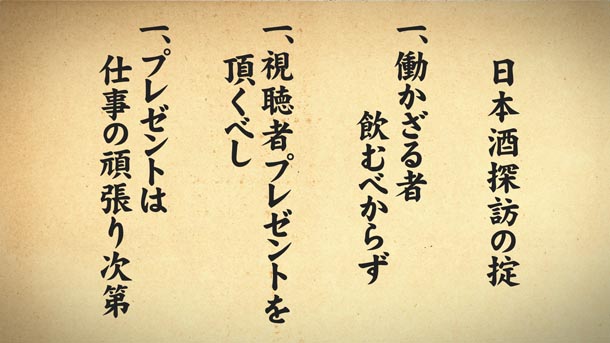 日本酒探訪の掟
一、働かざる者
飲むべからず
一、視聴者プレゼントを
頂くべし
一、プレゼントは
仕事の頑張り次第